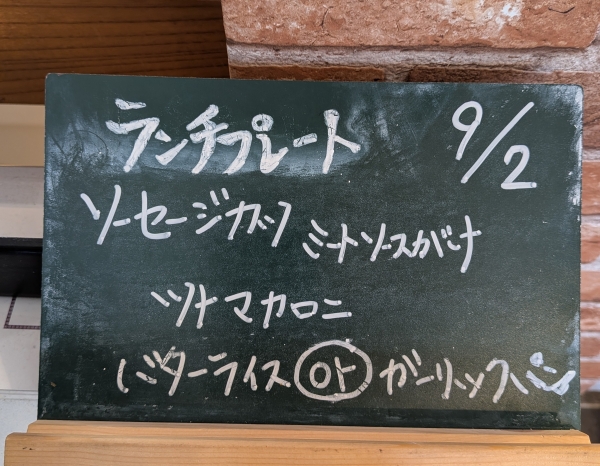 ランチプレート 9/2
ソーセージカツ ミートソースがけ
ツナマカロニ
バターライス or ガーリックパン